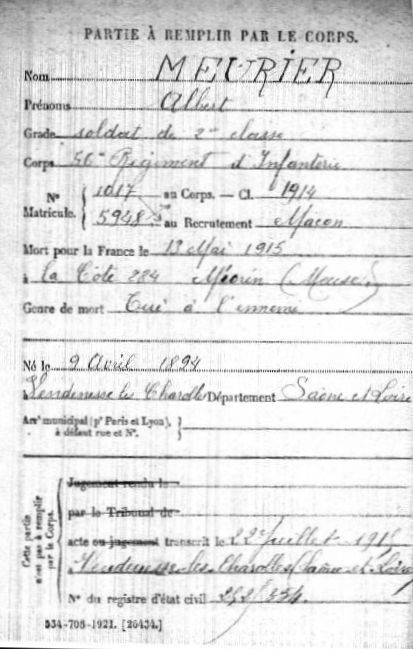 PARTIE À REMPLIR PAR LE CORPS.
Nom MEURIER
Prénoms Albert
Grade soldat de 2e classe
Corps 56e Régiment d'Infanterie
N° 1017 au Corps. — Cl. 1914
Matricule. 5948 au Recrutement Macon
Mort pour la France le 13 Mai 1915
à la Côte 284 (Meuse)
Genre de mort Tué à l'ennemi
Né le 9 Avril 1894
à Vendenesse les Charolles Département Saône et Loire
Arrt municipal (pr Paris et Lyon),
à défaut rue et N°.
Cette partie
n'est pas à remplir
par le Corps.
Jugement rendu le
par le Tribunal de
acte ou jugement transcrit le 22 Juillet 1915
à Vendenesse-les-Charolles (Saône-et-Loire)
N° du registre d'état civil
534-708-1921. [26434.]